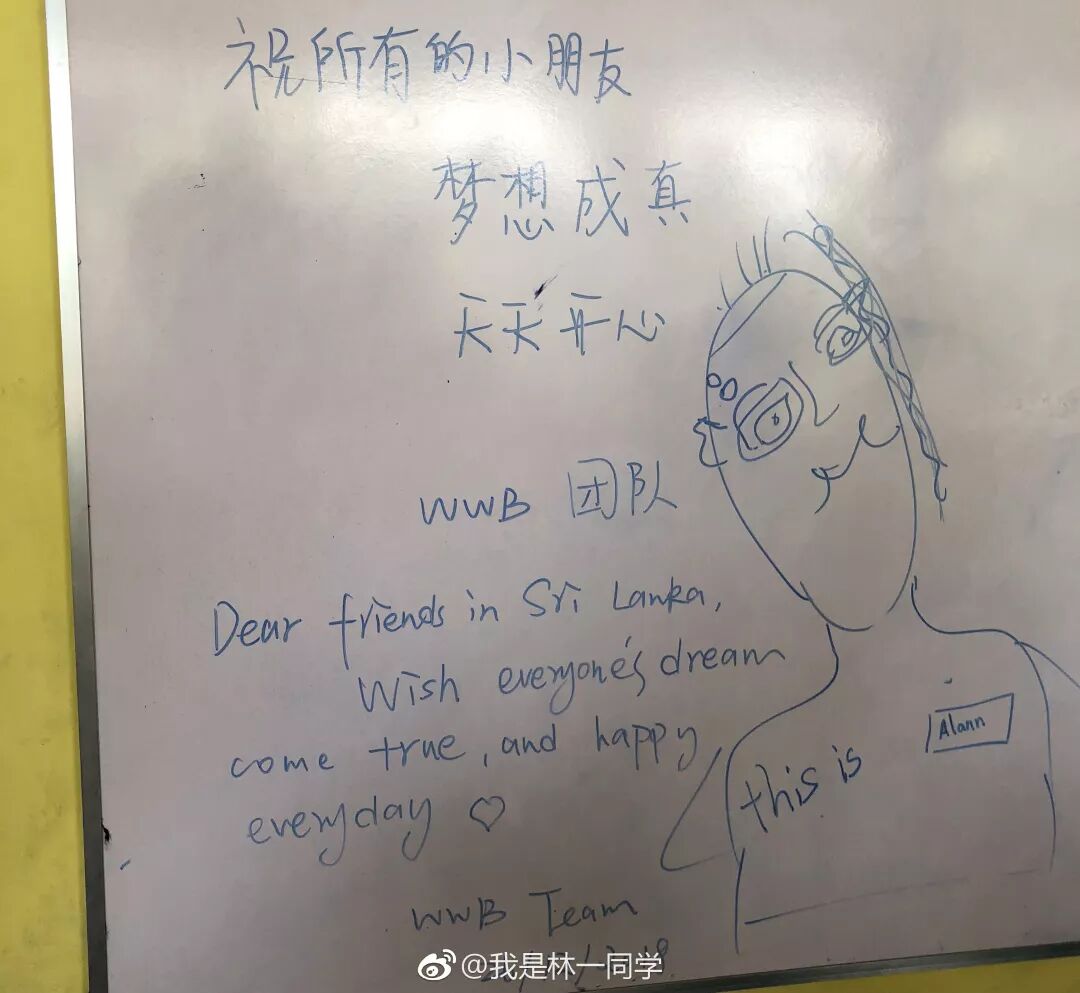 祝所有的小朋友
梦想成真
天天开心
WWB 团队
Dear friends in Sri Lanka,
Wish everyone's dream
come true, and happy
everyday ♡
WWB Team
this is
Alann
@我是林一同学